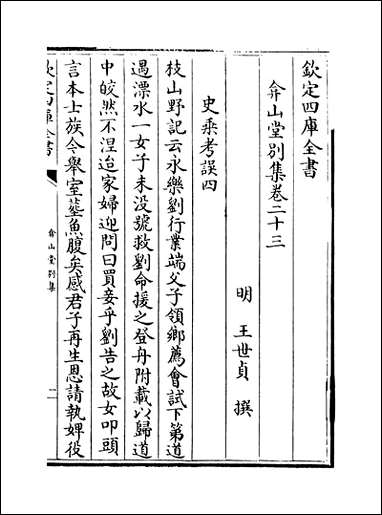 欽定四庫全書
弇山堂別集卷二十三
明 王世貞 撰
史乘考誤四
枝山野記云永樂劉行業端父子領鄉薦會試下第道
過漂水一女子未没號救劉命援之登舟附載以歸道
中皎然不涅迨家婦迎問曰買妾乎劉告之故女叩頭
言本士族今舉室塟魚腹矣感君子再生恩請執婢役
欽定四庫全書
弇山堂別集